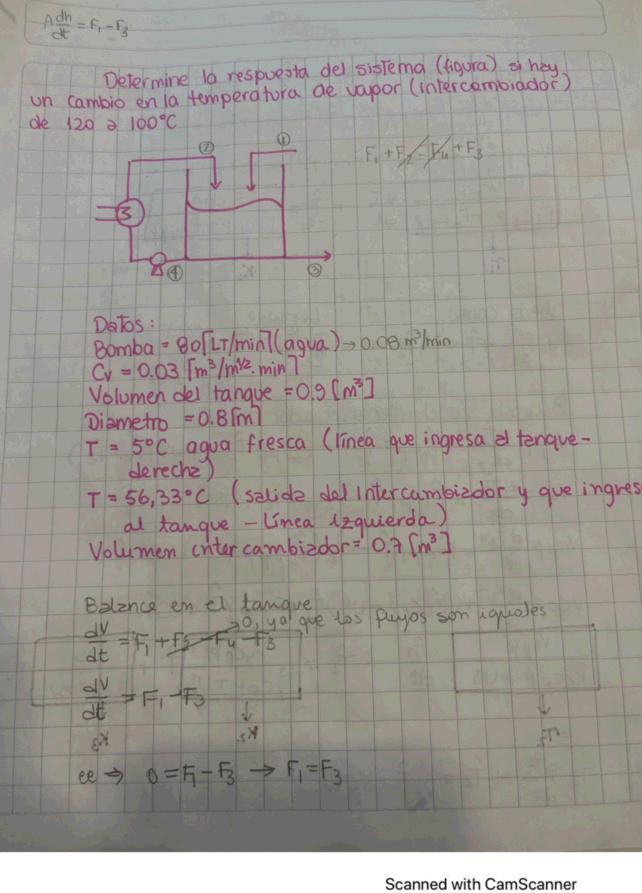 A dh/dt = F₁ - F₃
Determine la respuesta del sistema (figura) si hay
un cambio en la temperatura de vapor (intercambiador)
de 120 a 100°C
② ①
F₁ + F₂ = F₄ + F₃
④ ③
Datos:
Bomba = 80 [LT/min] (agua) → 0.08 m³/min
Cv = 0.03 [m³/m^1/2. min]
Volumen del tanque = 0.9 [m³]
Diametro = 0.8 [m]
T = 5°C agua fresca (línea que ingresa al tanque-
derecha)
T = 56,33°C (salida del intercambiador y que ingres
al tanque - Línea izquierda)
Volumen intercambiador = 0.7 [m³]
Balance en el tanque
→ 0, ya que los flujos son iguales
dV/dt = F₁ + F₂ - F₄ - F₃
dV/dt = F₁ - F₃
ee ⇒ 0 = F₁ - F₃ → F₁ = F₃
Scanned with CamScanner